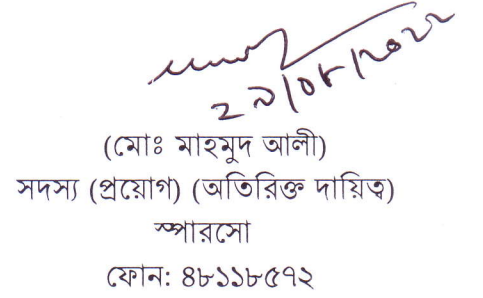 ২৯/০৮/২০২২
(মোঃ মাহমুদ আলী)
সদস্য (প্রয়োগ) (অতিরিক্ত দায়িত্ব)
স্পারসো
ফোন: ৪৮১১৮৫৭২